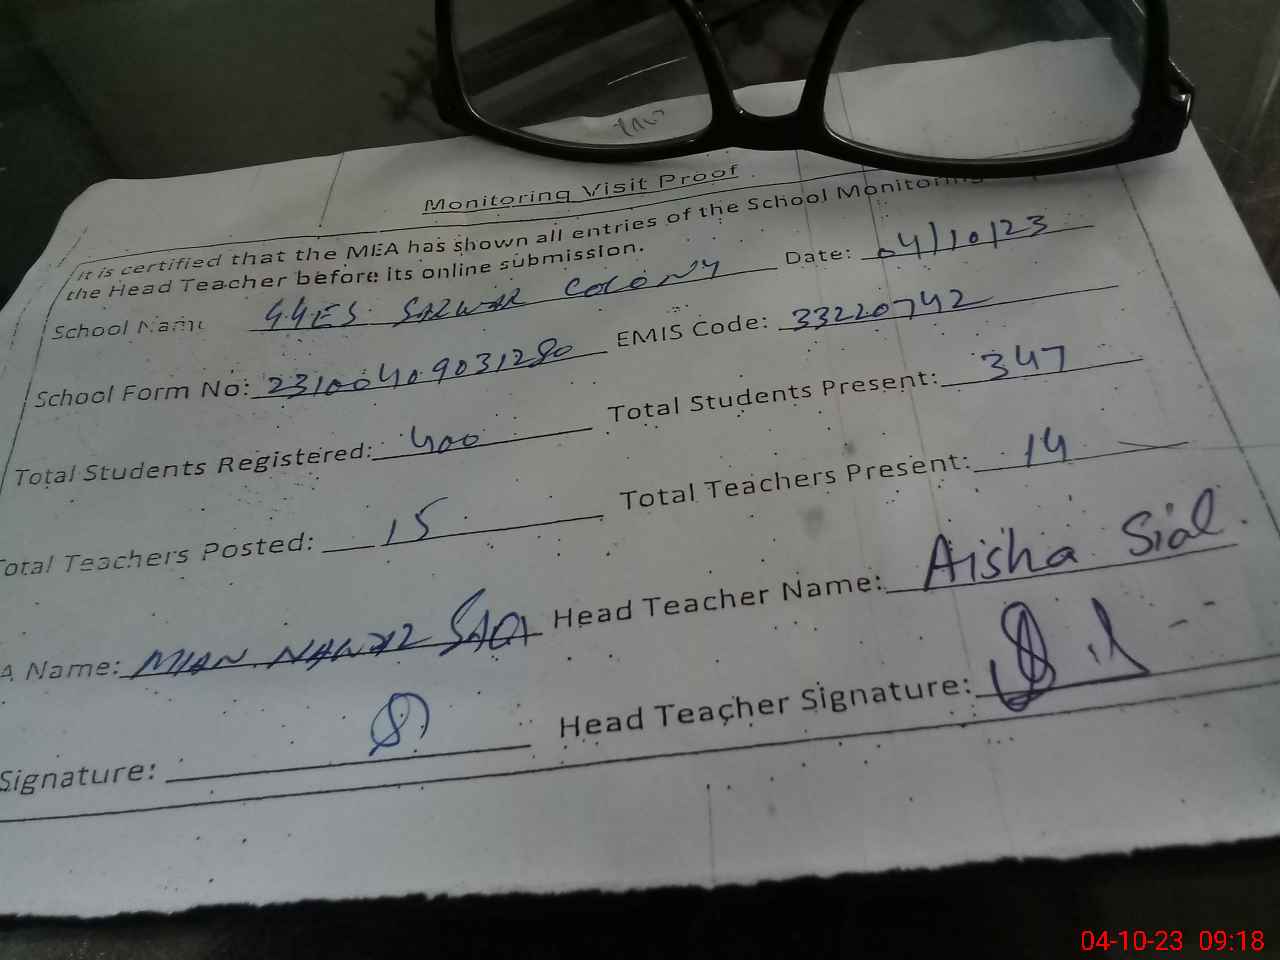 Monitoring Visit Proof
It is certified that the MEA has shown all entries of the School
the Head Teacher before its online submission.
School Name GGES SARWAR COLONY Date: 04/10/23
School Form No: 23100409031280 EMIS Code: 33220742
Total Students Registered: 400 Total Students Present: 347
Total Teachers Posted: 15 Total Teachers Present: 14
A Name: MIAN NAWAZ Head Teacher Name: Aisha Sial
Signature: Head Teacher Signature:
04-10-23 09:18